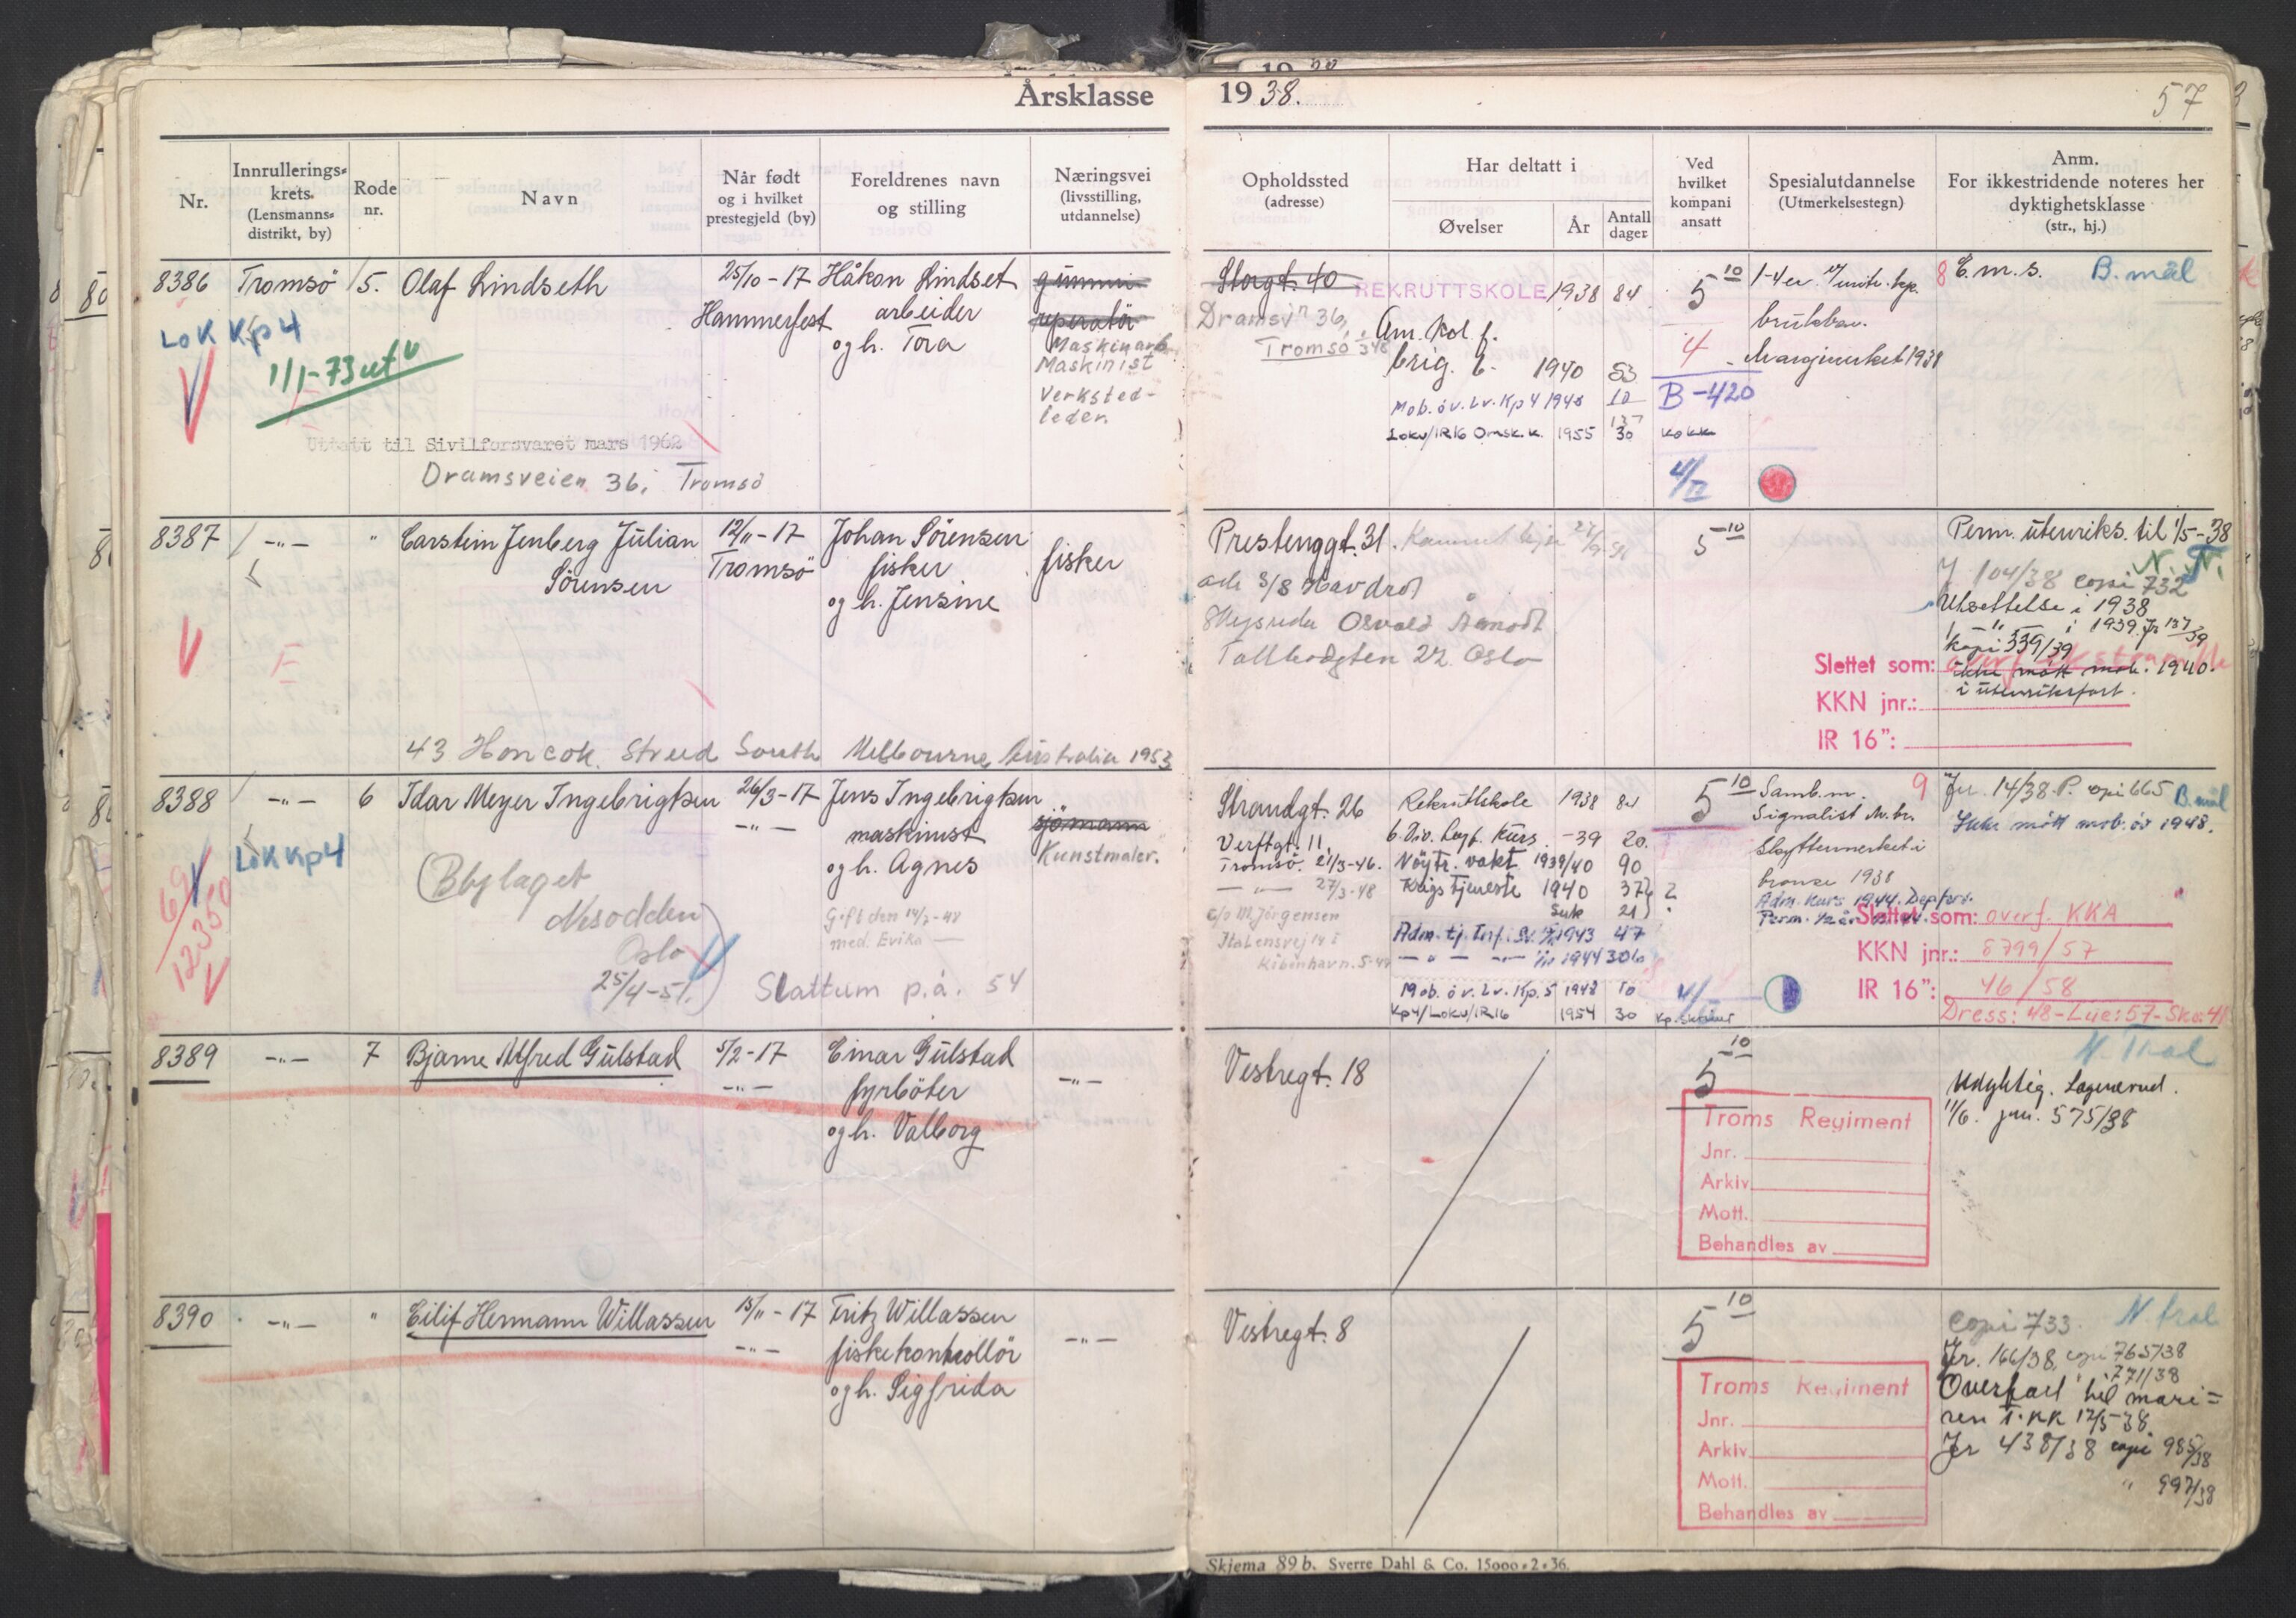 Årsklasse 1938.
57
Nr.
Innrullerings-
krets.
(Lensmanns-
distrikt, by)
Rode
nr.
Navn
Når født
og i hvilket
prestegjeld (by)
Foreldrenes navn
og stilling
Næringsvei
(livsstilling,
utdannelse)
Opholdssted
(adresse)
Har deltatt i
Øvelser
År
Antall
dager
Ved
hvilket
kompani
ansatt
Spesialutdannelse
(Utmerkelsestegn)
Anm.
For ikkestridende noteres her
dyktighetsklasse
(str., hj.)
8386
Tromsö
5.
Olaf Lindseth
25/10-17
Hammerfest
Håkon Lindset
arbeider
og h. Tora
gummi
reperatör
Maskinarb
Maskinist
Verksted-
leder
LoK Kp4
1/1-73 ut
Uttatt til Sivilforsvaret mars 1962
Dramsveien 36, Tromsö
Storgt. 40
Dramsvn 36,
Tromsö
REKRUTTSKOLE 1938 84
Am. kol. f.
brig. 6. 1940 53
Mob.öv. Lv. Kp4 1948 10
137
Lokv/IR16 Omsk.k. 1955 30
5 10
4
B-420
kokk
4/IV
Marsjmerket 1938
8
E.m.s.
B.mål
8387
-"-
"
Carstein Jenberg Julian
Sörensen
12/11-17
Tromsö
Johan Sörensen
fisker
og h. Jensine
fisker
E
43 Honcok Streed South Melbourne Australia 1953
Prestenggt. 31.
Havdrot
Osvald
Oslo
5 10
Perm. utenriks. til 1/5-38
N.
J 104/38 copi 732
Utsettelse i 1938
-"- i 1939. Jr 137/39
kopi 339/39
ikke mött mob. 1940.
i utenriksfart.
Slettet som:
KKN jnr.:
IR 16":
8388
-"-
6
Idar Meyer Ingebrigtsen
26/3-17
-"-
Jens Ingebrigtsen
maskinist
og h. Agnes
Gift den 14/2-48
med Evika
sjömann
Kunstmaler.
LoK Kp4
69
12350
Nesodden
Oslo
25/4-51.
Slattum p.å. 54
Strandgt. 26
Verftgt. 11.
Tromsö. 21/3-46.
-"- 27/3-48
c/o M. Jörgensen
Köbenhavn. 5-49
Rekrutskole 1938 84
6. Div. Kurs. -39 20.
Nöytr. vakt 1939/40 90
Krigstjeneste 1940 37
21
Adm. tj. Inf. 1943 47
-"- 1944 306
Mob. öv. Lv. Kp. 5 1948 10
Kp4/Lokv/IR16 1954 30
5 10
4/
Samb.m.
Signalist
Skyttermerket i
bronse 1938
Adm. kurs 1944.
9
Jr. 14/38 P. copi 665
B.mål
Ikke mött mob. öv 1948.
Slettet som: overf. KKA
KKN jnr.: 8799/57
IR 16": 46/58
Dress: 48-Lue: 57-Sko: 41
8389
-"-
7
Bjarne Alfred Gulstad
5/2-17
-"-
Einar Gulstad
fyrböter
og h. Valborg
-"-
Vestregt. 18
5 10
Troms Regiment
Jnr.
Arkiv
Mott.
Behandles av
Udyktig.
11/6. jnr. 575/38
8390
-"-
"
Eilif Hermann Willassen
15/11-17
-"-
Fritz Willassen
fiskekontrollör
og h. Sigfrida
-"-
Vestregt. 8
5 10
Troms Regiment
Jnr.
Arkiv
Mott.
Behandles av
copi 733.
Jr. 166/38, copi 765/38
" 771/38
Overfört til mari=
nen T.KK 12/5-38.
Jr 438/38 copi 985/38
" 997/38
Skjema 89 b. Sverre Dahl & Co. 15000-2-36.